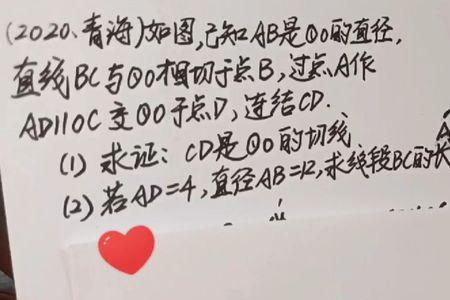 (2020、青海)如图,已知AB是⊙O的直径,
直线BC与⊙O相切于点B,过点A作
AD∥OC交⊙O于点D,连结CD.
(1) 求证: CD是⊙O的切线
(2) 若AD=4,直径AB=12,求线段BC的长